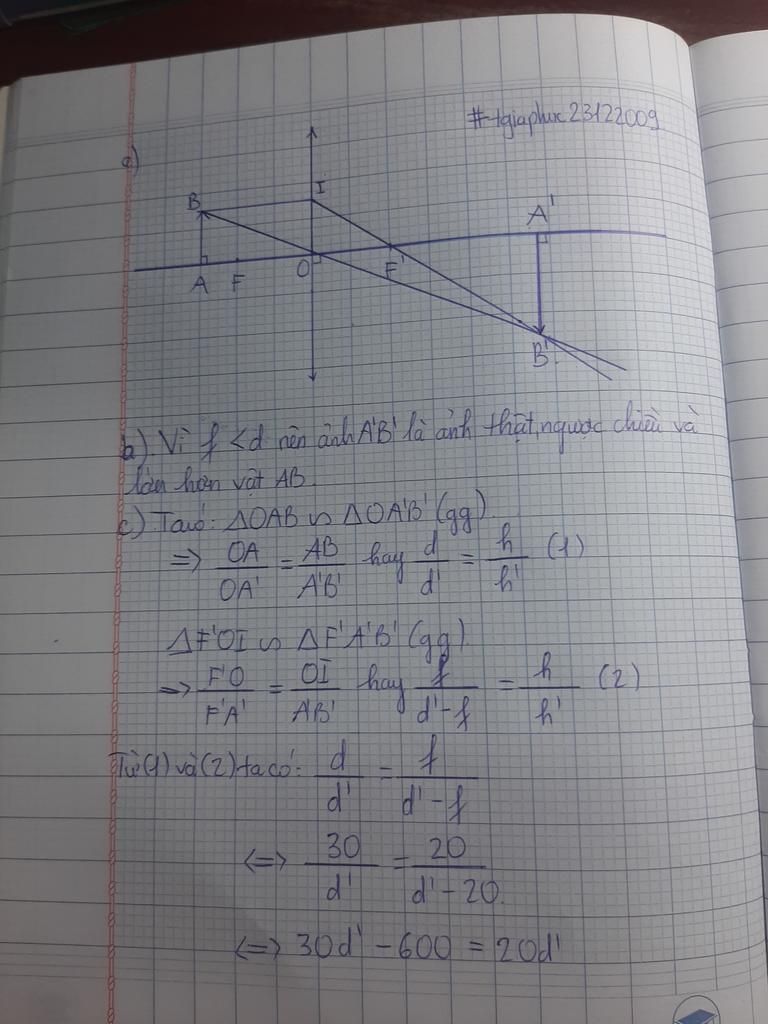 #tgiaphuc23122009
a)
B I A'
A F O F' B'
b). Vì f < d nên ảnh A'B' là ảnh thật, ngược chiều và
lớn hơn vật AB.
c). Ta có: ΔOAB ∽ ΔOA'B' (gg).
=> OA/OA' = AB/A'B' hay d/d' = h/h' (1)
ΔF'OI ∽ ΔF'A'B' (gg).
=> F'O/F'A' = OI/A'B' hay f/d'-f = h/h' (2)
Từ (1) và (2) ta có: d/d' = f/d'-f
<=> 30/d' = 20/d'-20.
<=> 30d' - 600 = 20d'